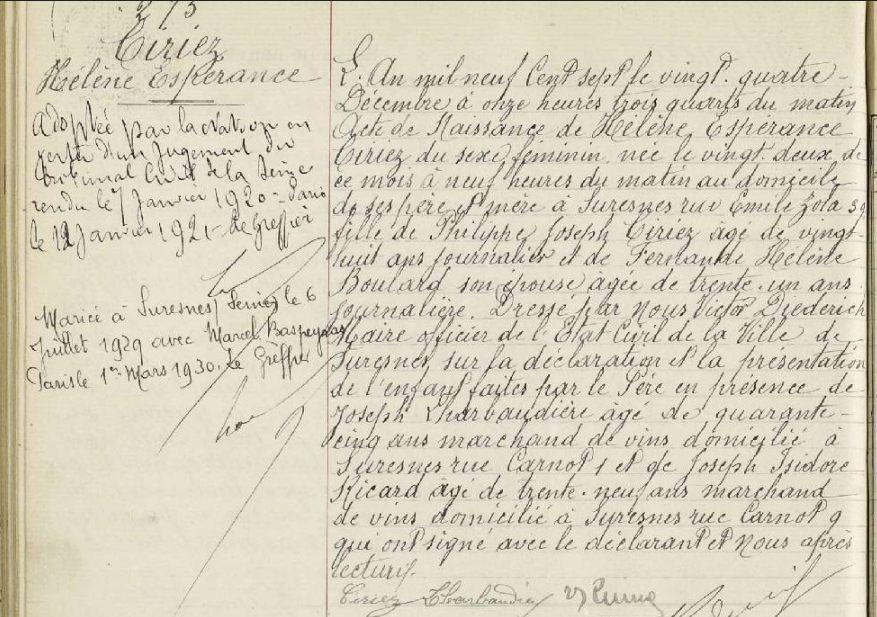 Ciriez
Hélène Espérance
Adoptée par la Nation en
vertu d'un jugement du
tribunal Civil de la Seine
rendu le 7 Janvier 1920 - Paris
le 12 Janvier 1921 - Le Greffier
Mariée à Suresnes (Seine) le 6
Juillet 1929 avec Marcel Baspeyras
Paris le 1er Mars 1930. Le Greffier
L'An mil neuf Cent sept le vingt-quatre
Décembre à onze heures trois quarts du matin
Acte de Naissance de Hélène Espérance
Ciriez du sexe féminin née le vingt-deux de
ce mois à neuf heures du matin au domicile
de ses père et mère à Suresnes rue Emile Zola 39
fille de Philippe Joseph Ciriez âgé de vingt-
huit ans journalier et de Fernande Hélène
Boulard son épouse âgée de trente-un ans
journalière. Dressé par Nous Victor Diederich
Maire officier de l'Etat Civil de la Ville de
Suresnes, sur la déclaration et la présentation
de l'enfant faites par le Père en présence de
Joseph Lharbaudière âgé de quarante-
cinq ans marchand de vins domicilié à
Suresnes rue Carnot 1 et de Joseph Isidore
Ricard âgé de trente-neuf ans marchand
de vins domicilié à Suresnes rue Carnot 9
qui ont signé avec le déclarant et Nous après
lecture.
Ciriez